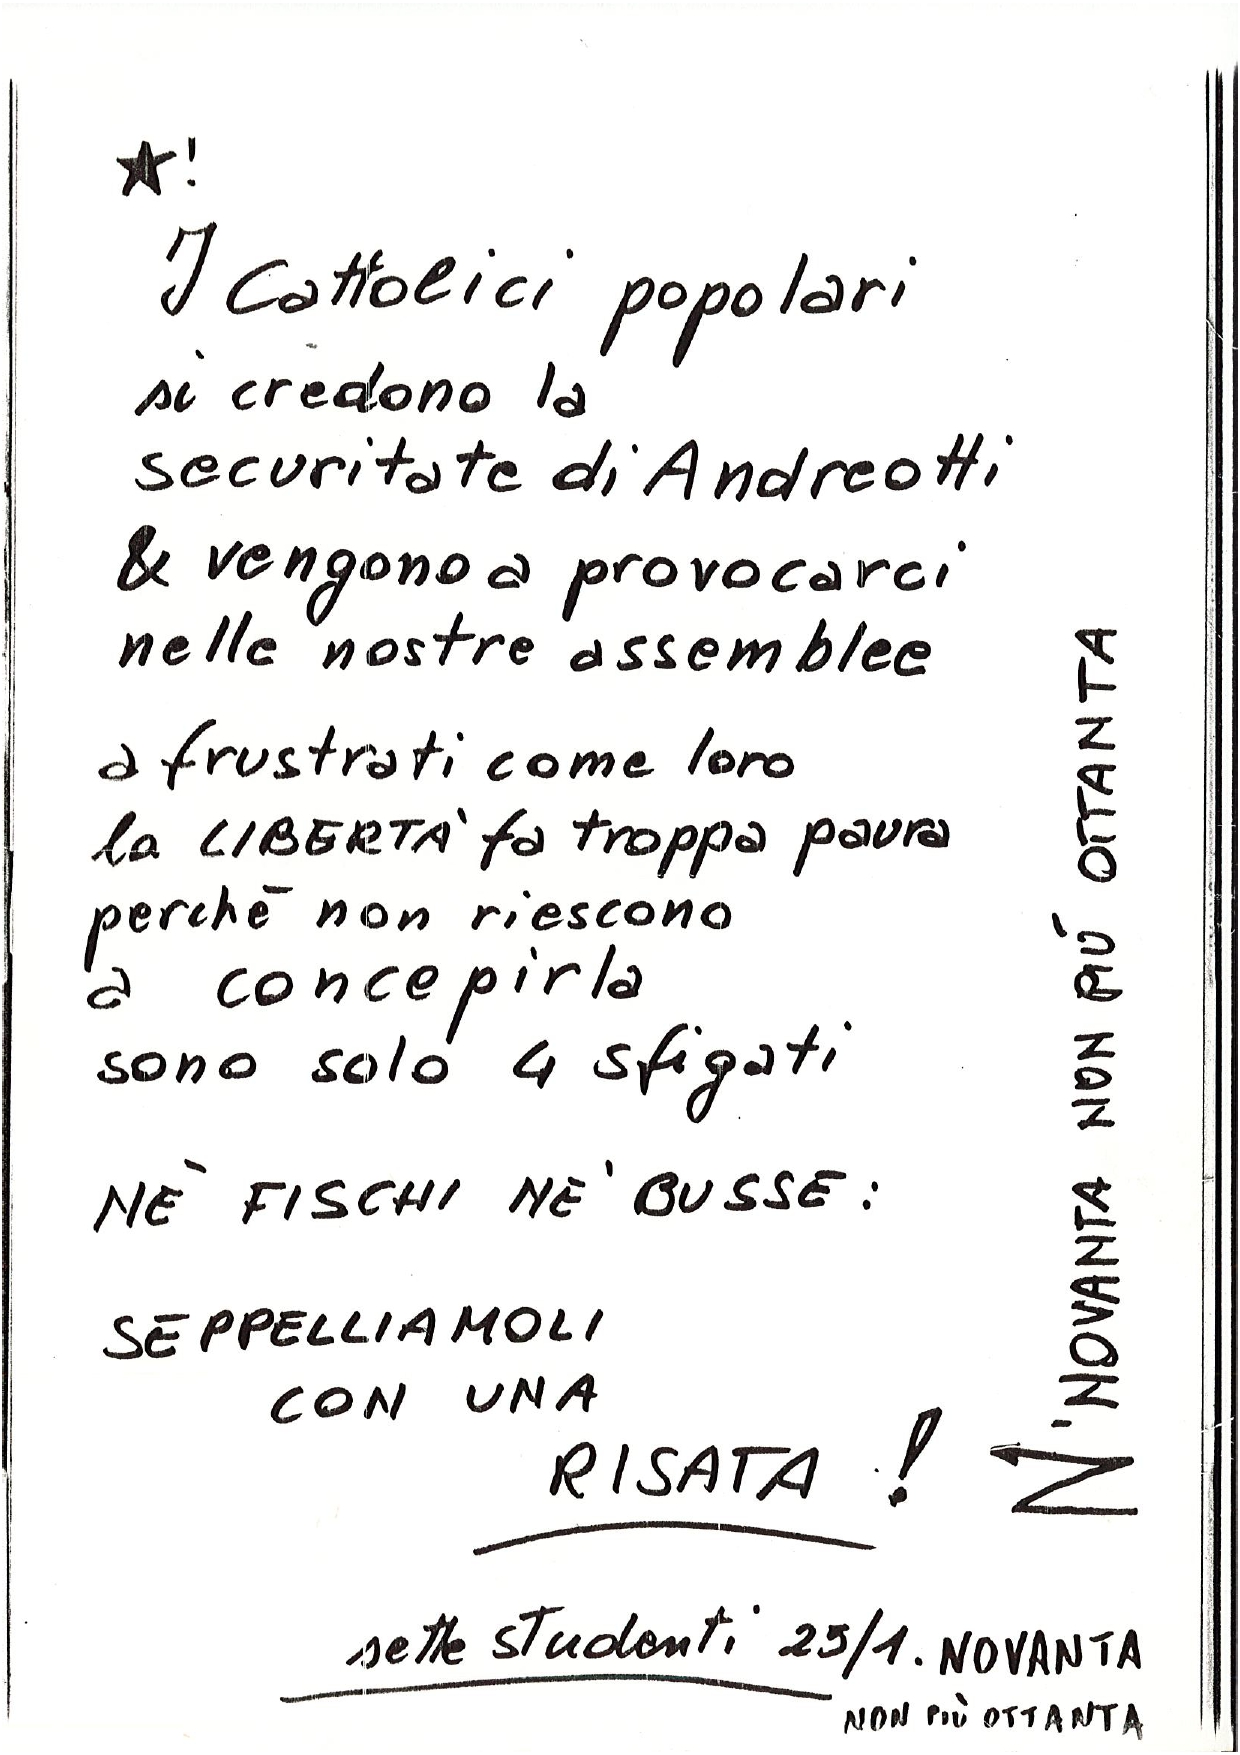 ★!
I Cattolici popolari
si credono la
securitate di Andreotti
& vengono a provocarci
nelle nostre assemblee
a frustrati come loro
la LIBERTA' fa troppa paura
perchè non riescono
a concepirla
sono solo 4 sfigati
NE' FISCHI NE' BUSSE:
SEPPELLIAMOLI
CON UNA
RISATA!
sette studenti 25/1. NOVANTA
NON PIÙ OTTANTA
N'NOVANTA NON PIÙ OTTANTA